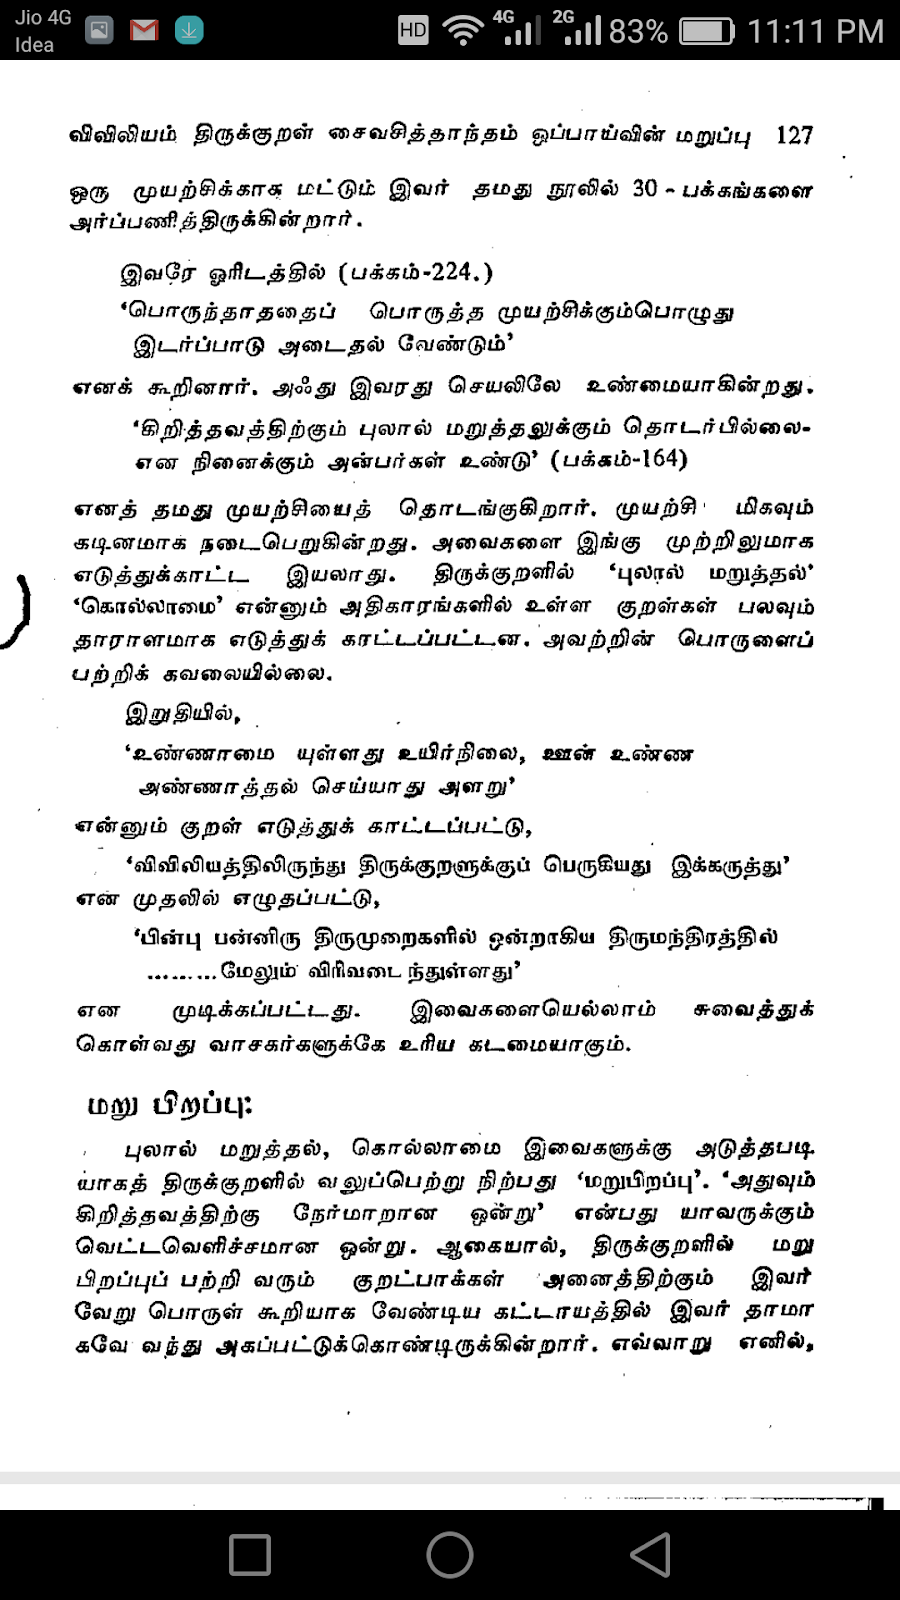 Jio 4G
Idea
HD 4G 2G 83% 11:11 PM
விவிலியம் திருக்குறள் சைவசித்தாந்தம் ஒப்பாய்வின் மறுப்பு 127
ஒரு முயற்சிக்காக மட்டும் இவர் தமது நூலில் 30 - பக்கங்களை
அர்ப்பணித்திருக்கின்றார்.
இவரே ஓரிடத்தில் (பக்கம்-224.)
‘பொருந்தாததைப் பொருத்த முயற்சிக்கும்பொழுது
இடர்ப்பாடு அடைதல் வேண்டும்’
எனக் கூறினார். அஃது இவரது செயலிலே உண்மையாகின்றது.
‘கிறித்தவத்திற்கும் புலால் மறுத்தலுக்கும் தொடர்பில்லை-
என நினைக்கும் அன்பர்கள் உண்டு’ (பக்கம்-164)
எனத் தமது முயற்சியைத் தொடங்குகிறார். முயற்சி மிகவும்
கடினமாக நடைபெறுகின்றது. அவைகளை இங்கு முற்றிலுமாக
எடுத்துக்காட்ட இயலாது. திருக்குறளில் ‘புலால் மறுத்தல்’
‘கொல்லாமை’ என்னும் அதிகாரங்களில் உள்ள குறள்கள் பலவும்
தாராளமாக எடுத்துக் காட்டப்பட்டன. அவற்றின் பொருளைப்
பற்றிக் கவலையில்லை.
இறுதியில்,
‘உண்ணாமை யுள்ளது உயிர்நிலை, ஊன் உண்ண
அண்ணாத்தல் செய்யாது அளறு’
என்னும் குறள் எடுத்துக் காட்டப்பட்டு,
‘விவிலியத்திலிருந்து திருக்குறளுக்குப் பெருகியது இக்கருத்து’
என முதலில் எழுதப்பட்டு,
‘பின்பு பன்னிரு திருமுறைகளில் ஒன்றாகிய திருமந்திரத்தில்
.........மேலும் விரிவடைந்துள்ளது’
என முடிக்கப்பட்டது. இவைகளையெல்லாம் சுவைத்துக்
கொள்வது வாசகர்களுக்கே உரிய கடமையாகும்.
மறு பிறப்பு:
புலால் மறுத்தல், கொல்லாமை இவைகளுக்கு அடுத்தபடி
யாகத் திருக்குறளில் வலுப்பெற்று நிற்பது ‘மறுபிறப்பு’. ‘அதுவும்
கிறித்தவத்திற்கு நேர்மாறான ஒன்று’ என்பது யாவருக்கும்
வெட்டவெளிச்சமான ஒன்று. ஆகையால், திருக்குறளில் மறு
பிறப்புப் பற்றி வரும் குறட்பாக்கள் அனைத்திற்கும் இவர்
வேறு பொருள் கூறியாக வேண்டிய கட்டாயத்தில் இவர் தாமா
கவே வந்து அகப்பட்டுக்கொண்டிருக்கின்றார். எவ்வாறு எனில்,